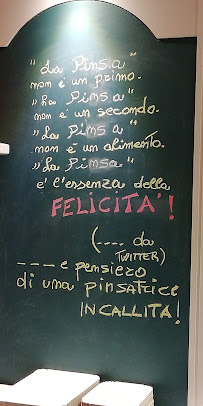 "La Pinsa"
non è un primo.
"La Pinsa"
non è un secondo.
"La Pinsa"
non è un alimento.
"La Pinsa"
e' l'essenza della
FELICITA'!
(---- da
TWITTER)
---- e pensiero
di una pinsatrice
INCALLITA!